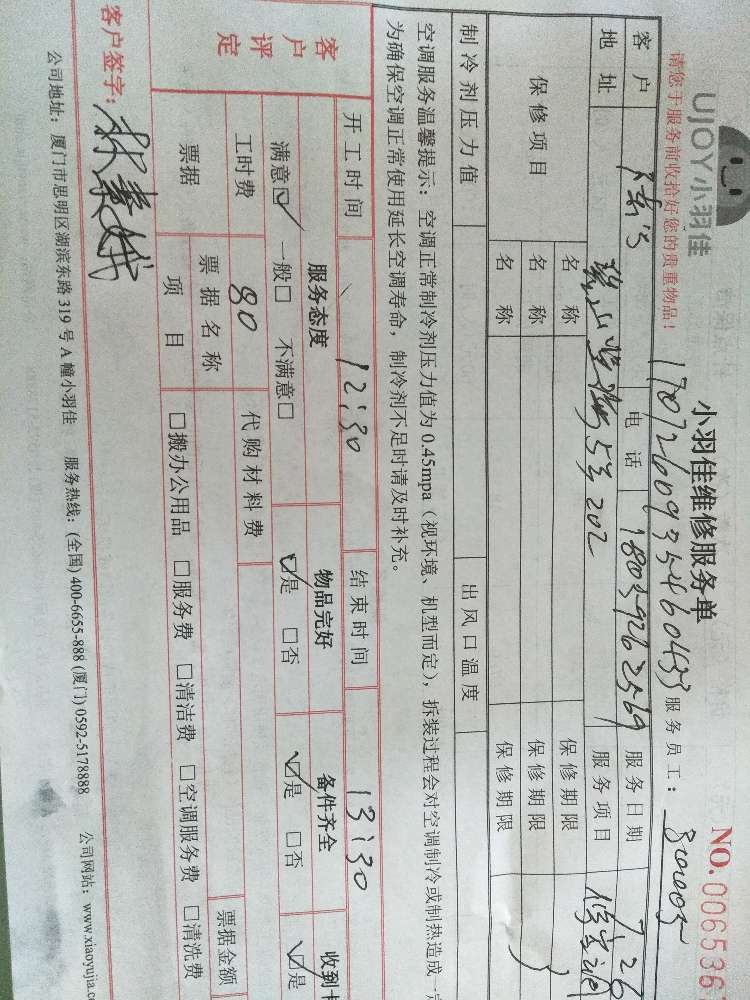 UJOY小羽佳
小羽佳维修服务单
NO.006536
请您于服务前收拾好您的贵重物品！
1707260935460433
服务员工：
客户
电话 18059262569
服务日期 7.26
地址
5号202
服务项目 修空调
保修项目
名称
保修期限
名称
保修期限
名称
保修期限
制冷剂压力值
出风口温度
空调服务温馨提示：空调正常制冷剂压力值为0.45mpa（视环境、机型而定），拆装过程会对空调制冷或制热造成一
为确保空调正常使用延长空调寿命，制冷剂不足时请及时补充。
开工时间 12:30
结束时间 13:30
客户评定
服务态度
物品完好
备件齐全
收到
满意☑ 一般□ 不满意□
☑是 □否
☑是 □否
☑是
工时费 80
代购材料费
票据
票据名称
票据金额
项目
□搬办公用品 □服务费 □清洁费 □空调服务费 □清洗费
客户签字：
公司地址：厦门市思明区湖滨东路319号A幢小羽佳 服务热线：(全国) 400-6655-888 (厦门) 0592-5178888 公司网站：www.xiaoyujia.c